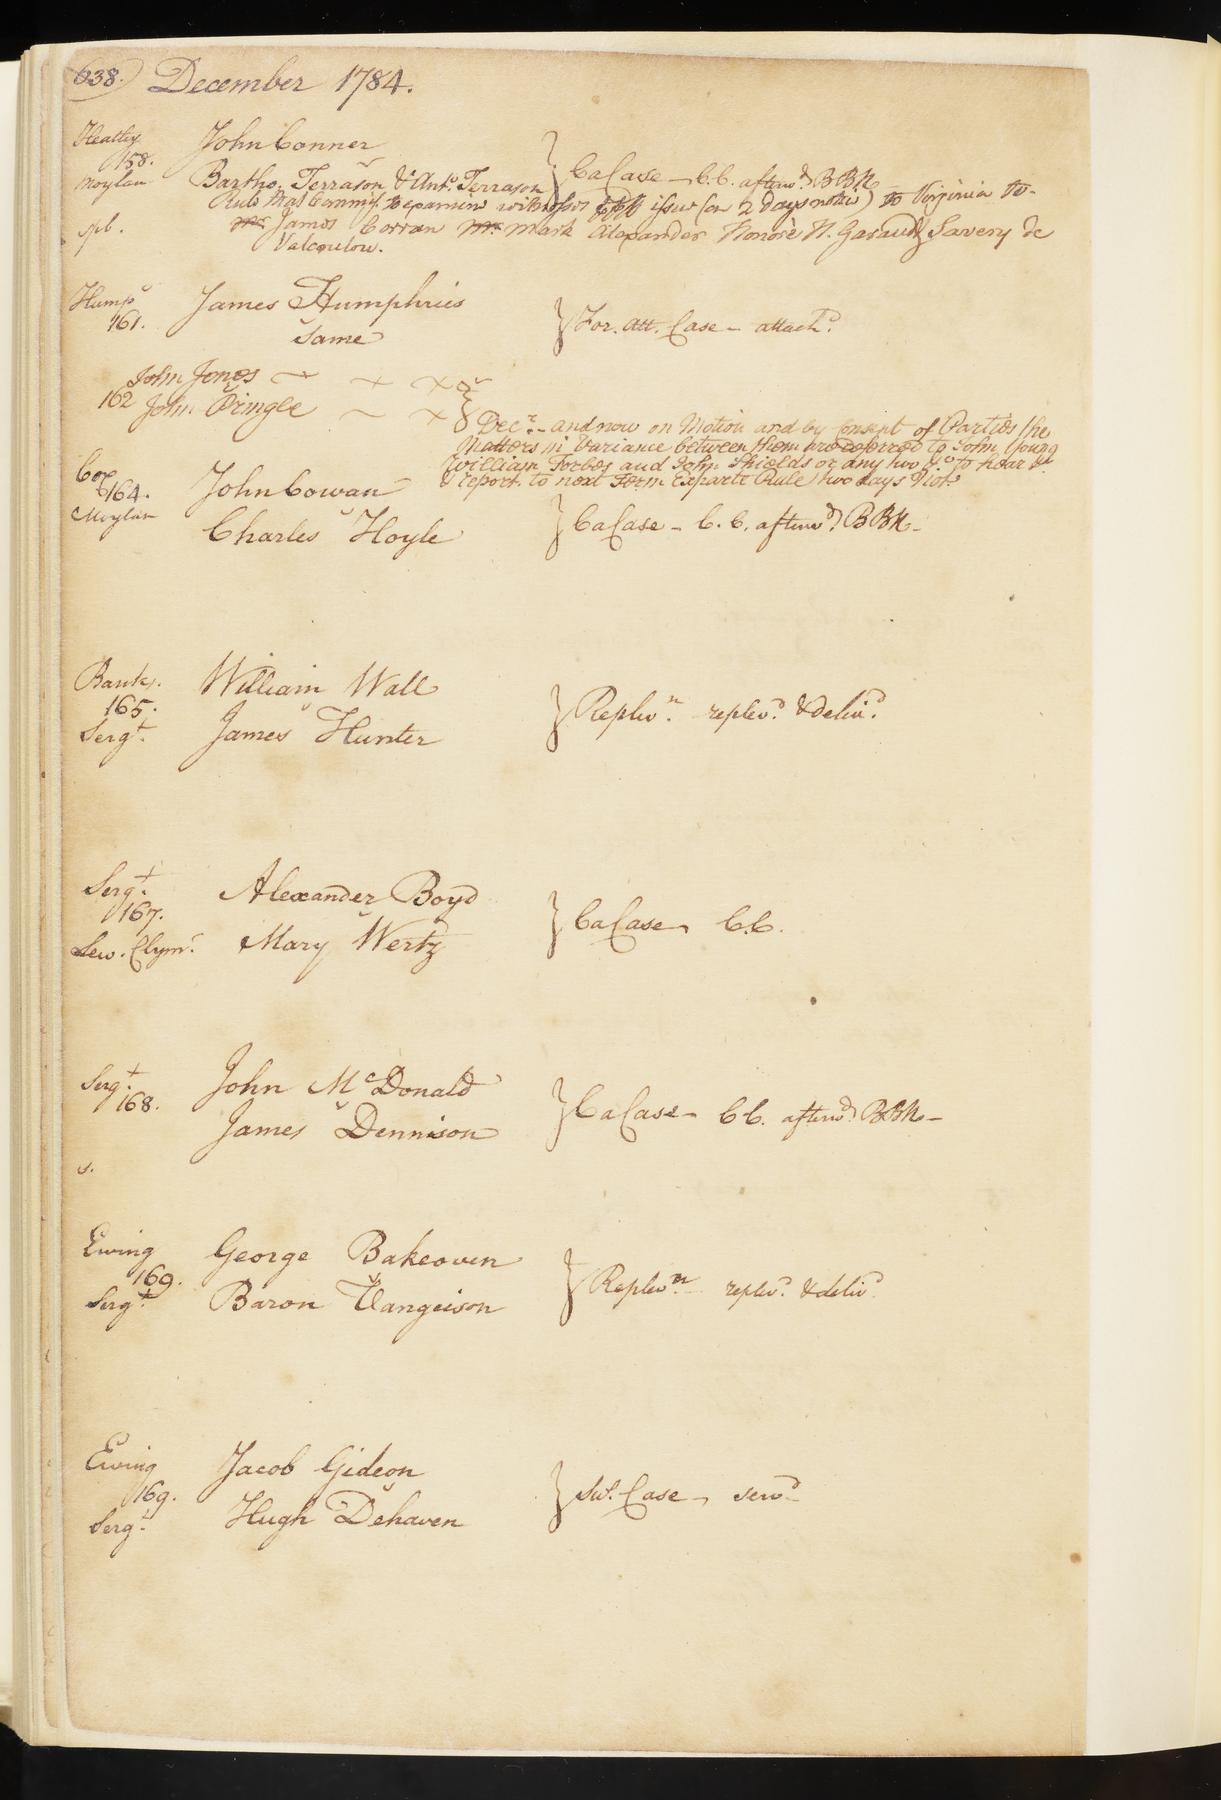 638.) December 1784.
Heatley
158. John Conner
Moylan Bartho. Terrason & Anto. Terrason } CaCase – C.C. afterwd. BBR
Rule that Commiss to examine witnesses issue (on 2 days notice) to Virginia to
pl. James Corran Mark Alexander Honore N. Garaud & Savery de
Valcoulou.
Humps James Humphries
161. } For. Att. Case – attachd.
Same
John Jones
162 John Pringle
} Decr. – and now on Motion and by Consent of Parties the
Matters in Variance between them are referred to John Young
William Forbes and John Shields or any two &c to hear &
report to next Term Exparte Rule two days Notc.
Cox
164. John Cowan
Moylan Charles Hoyle } CaCase – C.C. afterwd. BBR –
Bank. William Wall
165. } Replevn. replevd. & delivd.
Sergt. James Hunter
Sergt. Alexander Boyd
167. } CaCase – C.C.
Lew. Clymr. Mary Wertz
Sergt. John McDonald
168. } CaCase – C.C. afterwd. BBR –
James Dennison
s.
Ewing George Bakeoven
169. } Replevn. replevd. & delivd.
Sergt. Baron Vangeison
Ewing Jacob Gideon
169. } Sus. Case – servd.
Sergt. Hugh Dehaven